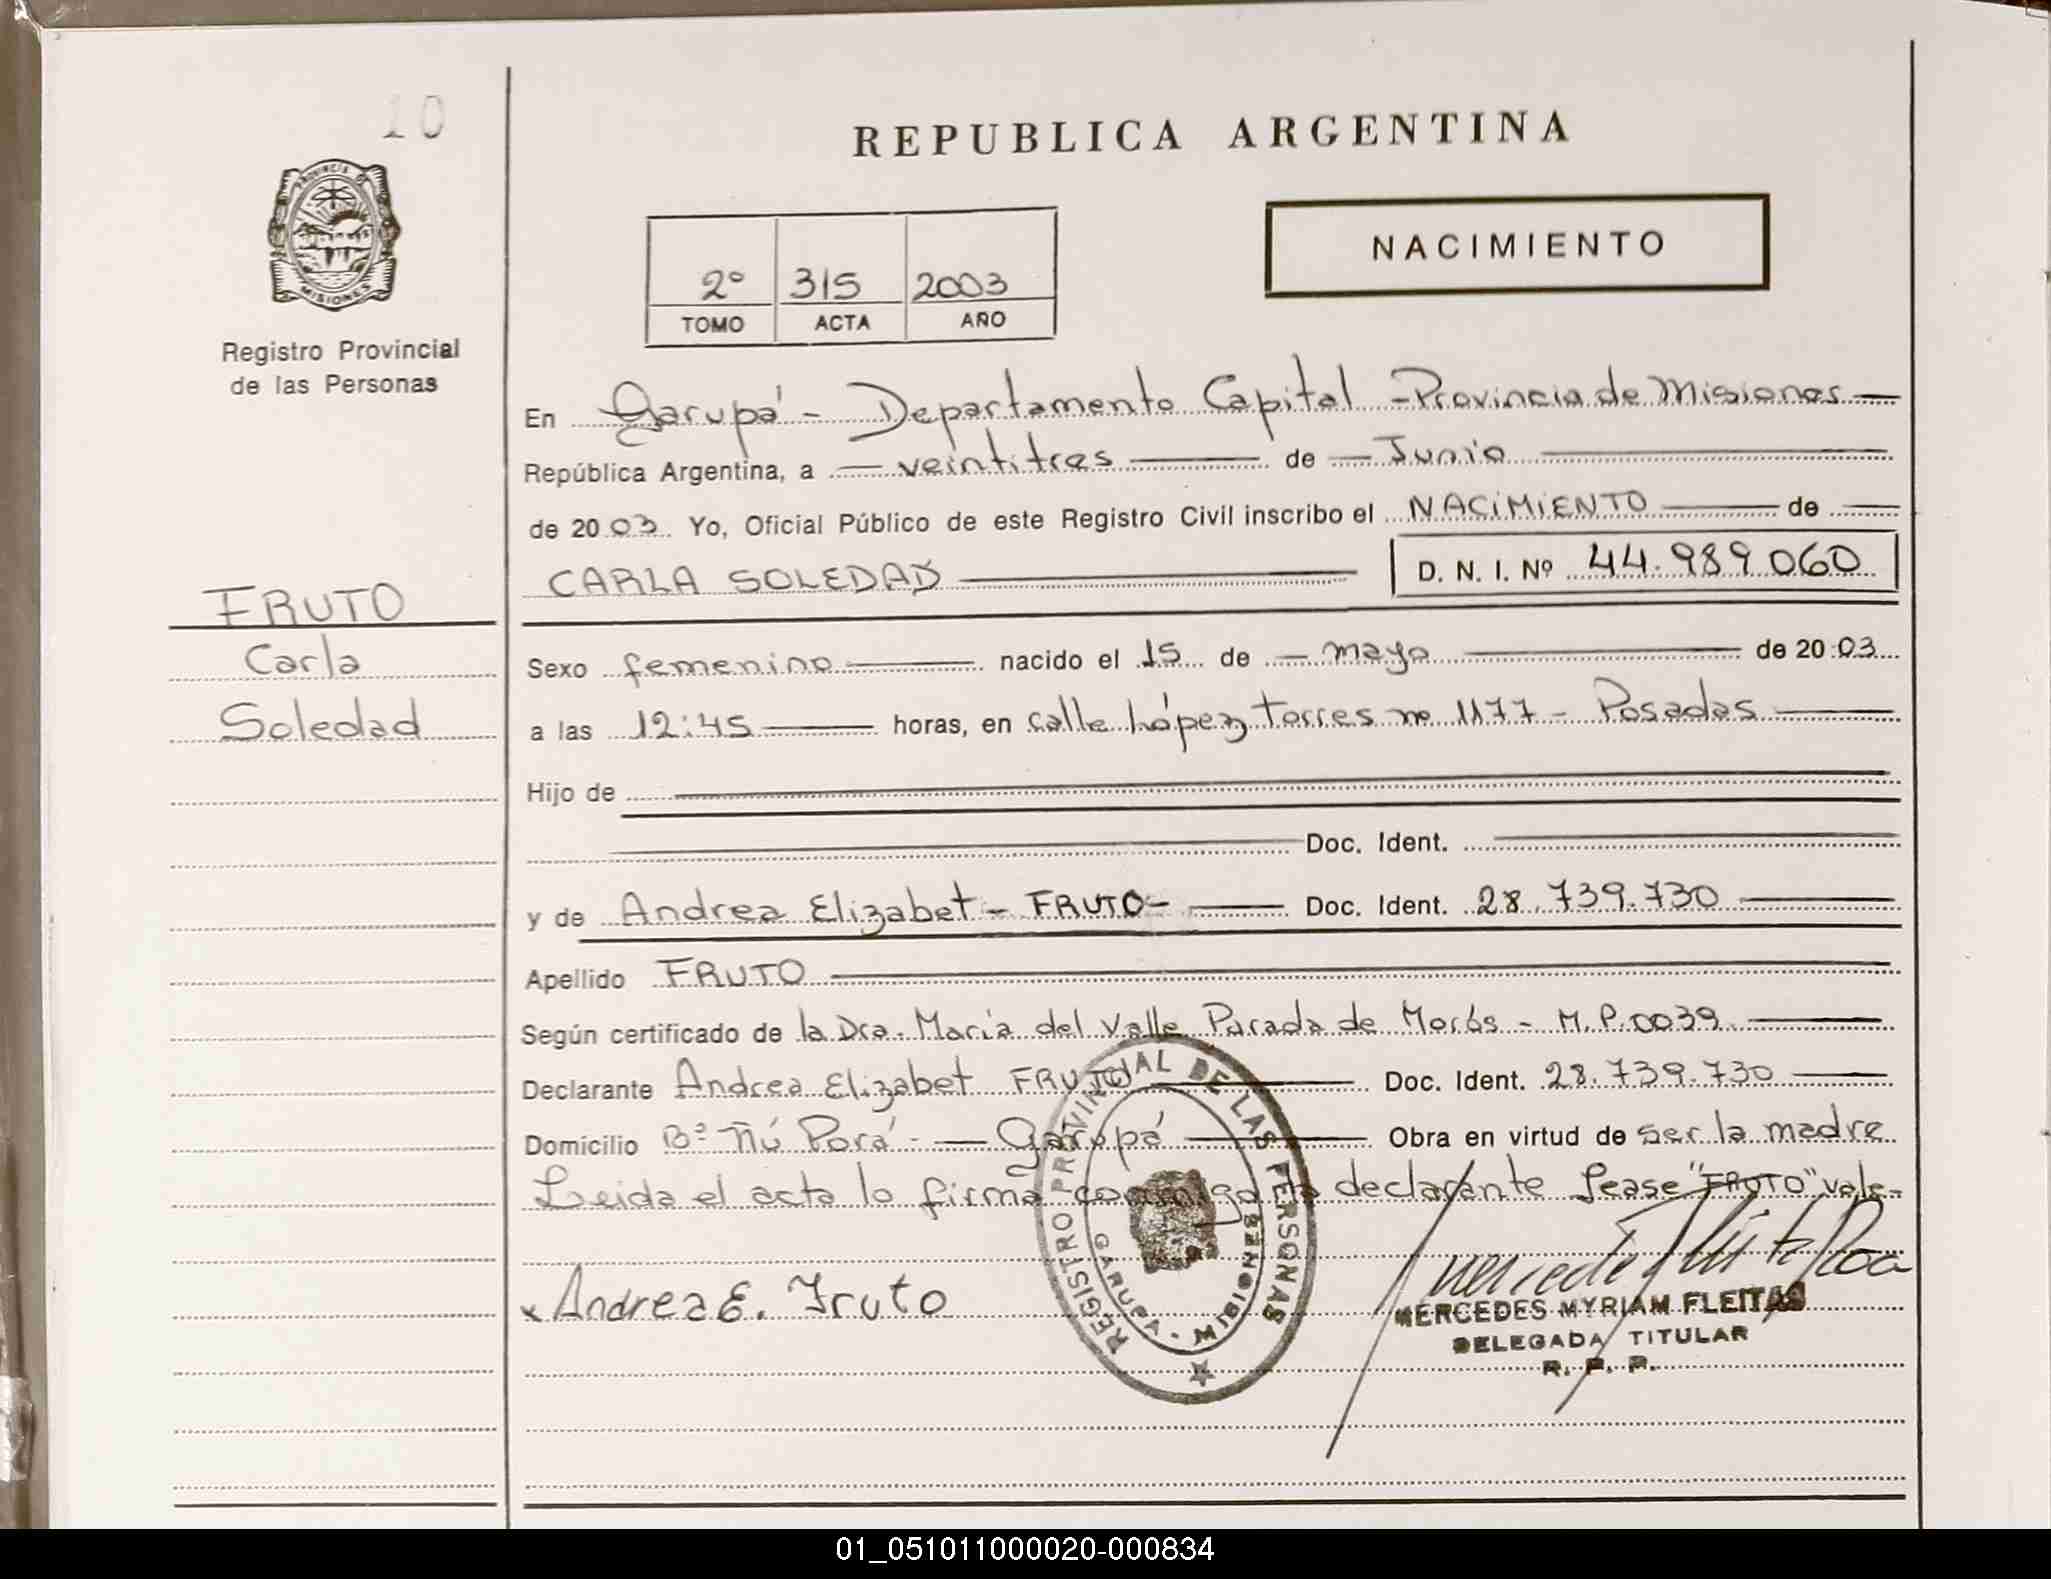 10
PROVINCIA DE
MISIONES
Registro Provincial
de las Personas
FRUTO
Carla
Soledad
REPUBLICA ARGENTINA
NACIMIENTO
2º 315 2003
TOMO ACTA AÑO
En Garupá - Departamento Capital - Provincia de Misiones
República Argentina, a veintitres de Junio
de 2003 Yo, Oficial Público de este Registro Civil inscribo el NACIMIENTO de
CARLA SOLEDAD D. N. I. Nº 44.989.060
Sexo femenino nacido el 15 de mayo de 2003
a las 12:45 horas, en calle López Torres nº 1177 - Posadas
Hijo de
Doc. Ident.
y de Andrea Elizabet - FRUTO - Doc. Ident. 28.739.730
Apellido FRUTO
Según certificado de la Dra. María del Valle Parada de - M.P. 0039
Declarante Andrea Elizabet FRUTO Doc. Ident. 28.739.730
Domicilio Bº Ñú Porá - Garupá Obra en virtud de ser la madre
Leida el acta lo firma conmigo la declarante lease "FRUTO" vale-
x Andrea E. Fruto
REGISTRO PROVINCIAL DE LAS PERSONAS
GARUPA - MISIONES
MERCEDES MYRIAM FLEITAS
DELEGADA TITULAR
R. P. P.
01_051011000020-000834